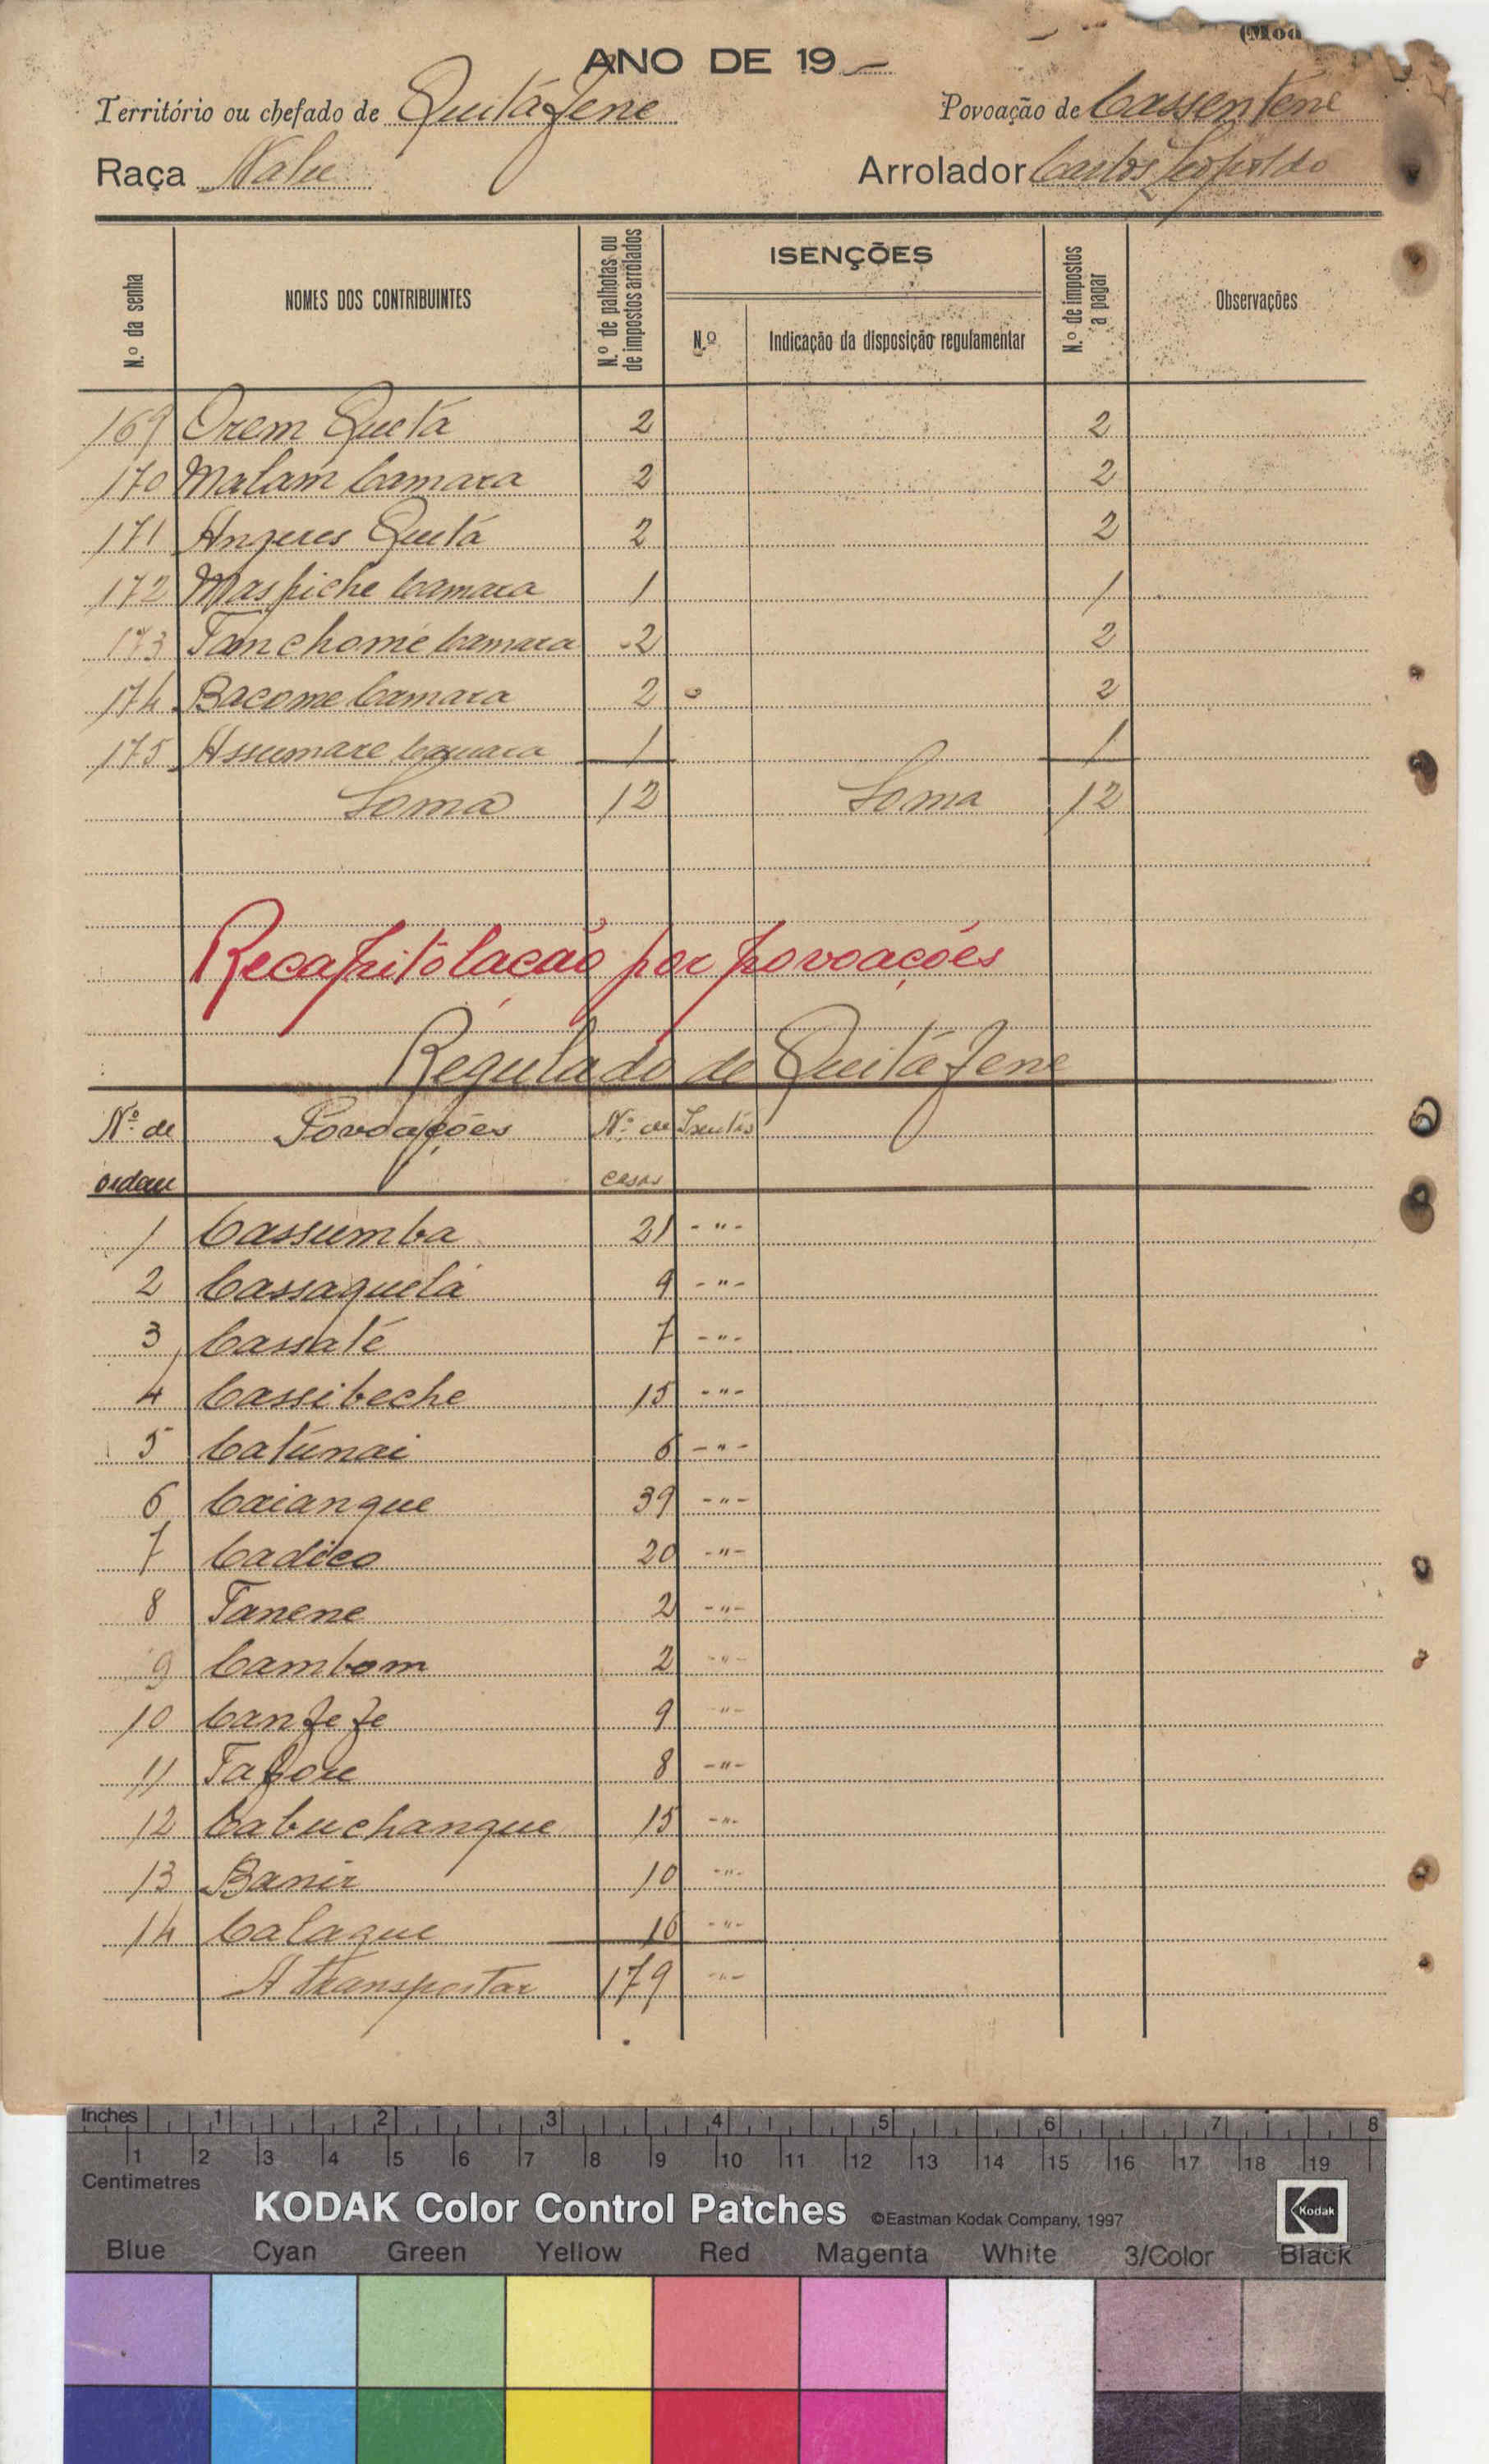 (Mod
ANO DE 19 —
Território ou chefado de Quitáfene Povoação de Cassentene
Raça Nalu Arrolador Carlos Leopoldo
N.º da senha NOMES DOS CONTRIBUINTES N.º de palhotas ou de impostos arrolados ISENÇÕES N.º de impostos a pagar Observações
N.º Indicação da disposição regulamentar
169 Orem Quetá 2 2
170 Malam Camara 2 2
171 Queta 2 2
172 Maspiche Camara 1 1
173 Tamchomé Camara 2 2
174 Bacome Camara 2 2
175 Assumare Camara 1 1
Soma 12 Soma 12
Recapitolacão por povoações
Regulado de Quitáfene
Nº de Povoações Nº de Isentos
ordem casas
1 Cassumba 21 - " -
2 Cassaquelá 9 - " -
3 Cassalé 7 - " -
4 Cassibeche 15 - " -
5 Catúnai 6 - " -
6 Caianque 39 - " -
7 Cadico 20 - " -
8 Tanene 2 - " -
9 Cambom 2 - " -
10 Canfefe 9 - " -
11 Tafore 8 - " -
12 Cabuchanque 15 - " -
13 Banir 10 - " -
14 Calaque 16 - " -
A transportar 179 - " -
Inches 1 2 3 4 5 6 7 8
1 2 3 4 5 6 7 8 9 10 11 12 13 14 15 16 17 18 19
Centimetres
KODAK Color Control Patches ©Eastman Kodak Company, 1997 Kodak
Blue Cyan Green Yellow Red Magenta White 3/Color Black